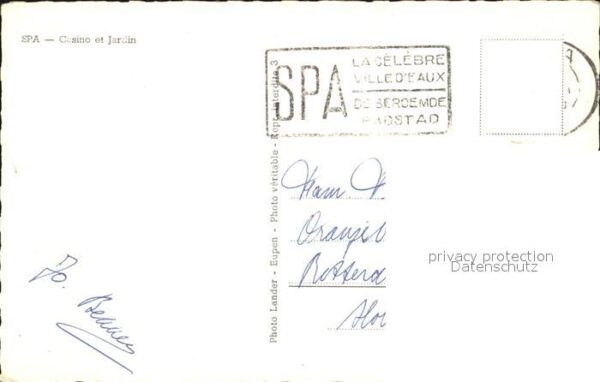 SPA — Casino et Jardin
SPA
LA CÉLÈBRE
VILLE D'EAUX
DE BEROEMDE
BADSTAD
Photo Lander - Eupen - Photo véritable - Repr. interdite 3
Oranjel
Rotterd
privacy protection
Datenschutz
Jo.